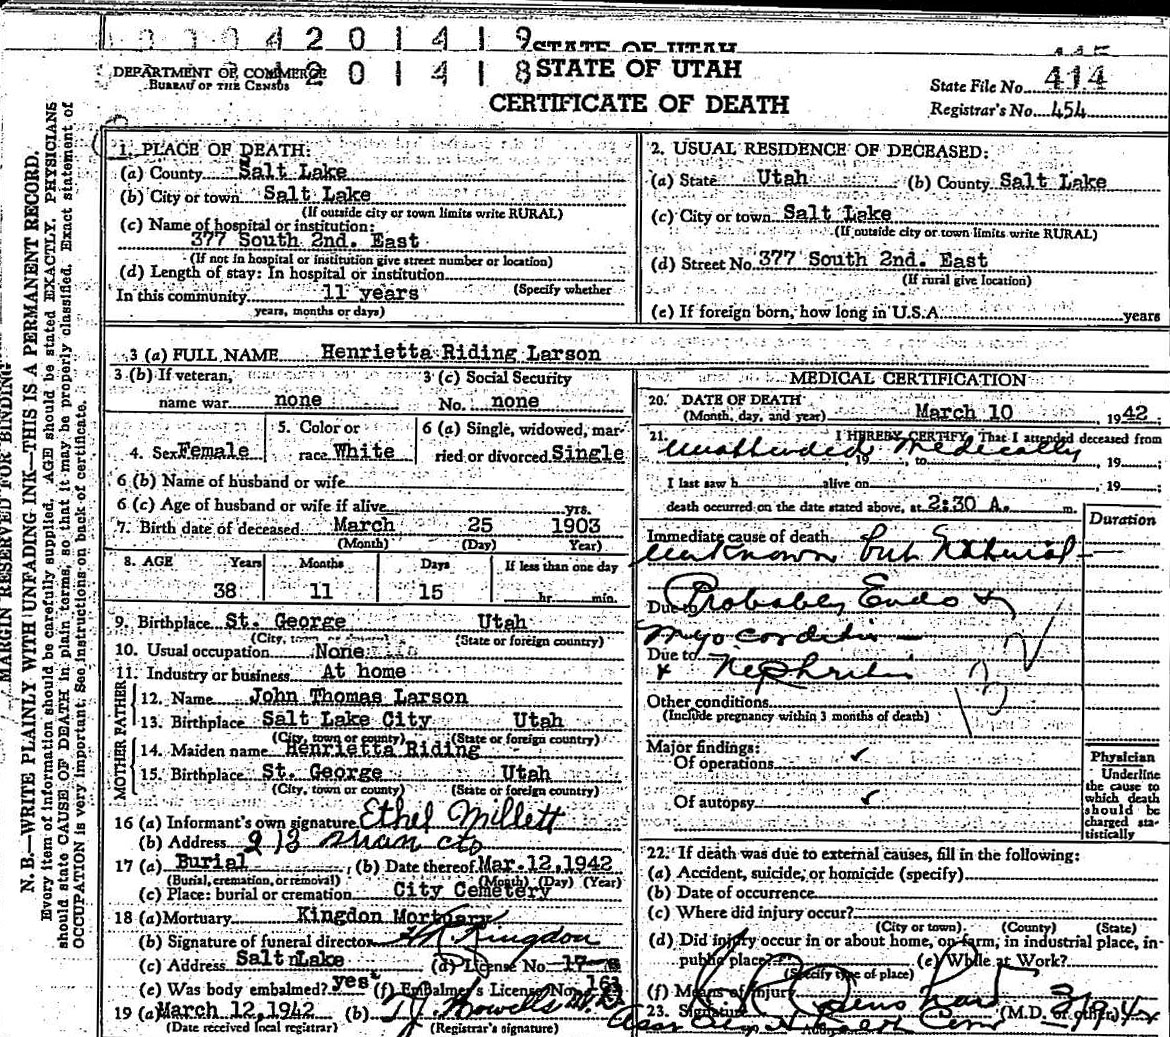 4 2 0 1 4 1 9
STATE OF UTAH
DEPARTMENT OF COMMERCE
2 0 1 4 1 8
STATE OF UTAH
BUREAU OF THE CENSUS
CERTIFICATE OF DEATH
State File No. 414
Registrar's No. 454
MARGIN RESERVED FOR BINDING
N. B.—WRITE PLAINLY WITH UNFADING INK—THIS IS A PERMANENT RECORD.
Every item of information should be carefully supplied. AGE should be stated EXACTLY. PHYSICIANS
should state CAUSE OF DEATH in plain terms, so that it may be properly classified. Exact statement of
OCCUPATION is very important. See instructions on back of certificate.
1. PLACE OF DEATH:
(a) County Salt Lake
(b) City or town Salt Lake
(If outside city or town limits write RURAL)
(c) Name of hospital or institution:
377 South 2nd. East
(If not in hospital or institution give street number or location)
(d) Length of stay: In hospital or institution
(Specify whether
In this community 11 years
years, months or days)
2. USUAL RESIDENCE OF DECEASED:
(a) State Utah (b) County Salt Lake
(c) City or town Salt Lake
(If outside city or town limits write RURAL)
(d) Street No. 377 South 2nd. East
(If rural give location)
(e) If foreign born, how long in U.S.A. years
3 (a) FULL NAME Henrietta Riding Larson
3 (b) If veteran, 3 (c) Social Security
name war none No. none
5. Color or 6 (a) Single, widowed, mar-
4. Sex Female race White ried or divorced Single
6 (b) Name of husband or wife
6 (c) Age of husband or wife if alive yrs.
7. Birth date of deceased March 25 1903
(Month) (Day) Year)
8. AGE Years Months Days If less than one day
38 11 15 hr. min.
9. Birthplace St. George Utah
(City, town or county) (State or foreign country)
10. Usual occupation None
11. Industry or business At home
FATHER
12. Name John Thomas Larson
13. Birthplace Salt Lake City Utah
(City, town or county) (State or foreign country)
MOTHER
14. Maiden name Henrietta Riding
15. Birthplace St. George Utah
(City, town or county) (State or foreign country)
16 (a) Informant's own signature Ethel Millett
(b) Address
17 (a) Burial (b) Date thereof Mar. 12, 1942
(Burial, cremation, or removal) (Month) (Day) (Year)
(c) Place: burial or cremation City Cemetery
18 (a) Mortuary Kingdon Mortuary
(b) Signature of funeral director Kingdon
(c) Address Salt Lake (d) License No.
(e) Was body embalmed? yes (f) Embalmer's License No.
19 (a) March 12, 1942 (b)
(Date received local registrar) (Registrar's signature)
MEDICAL CERTIFICATION
20. DATE OF DEATH
(Month, day, and year) March 10 1942
21. I HEREBY CERTIFY, That I attended deceased from
Unattended Medically
, 19 , to , 19 ;
I last saw h alive on , 19 ;
death occurred on the date stated above, at 2:30 A. m.
Duration
Immediate cause of death
unknown but Natural
Due to Probably Endo &
myocarditis
Due to
& Nephritis
Other conditions
(Include pregnancy within 3 months of death)
Major findings:
Of operations
Of autopsy
Physician
Underline
the cause to
which death
should be
charged sta-
tistically
22. If death was due to external causes, fill in the following:
(a) Accident, suicide, or homicide (specify)
(b) Date of occurrence
(c) Where did injury occur?
(City or town) (County) (State)
(d) Did injury occur in or about home, on farm, in industrial place, in
public place? (e) While at Work?
(Specify type of place)
(f) Means of injury
23. Signature (M.D. or other)